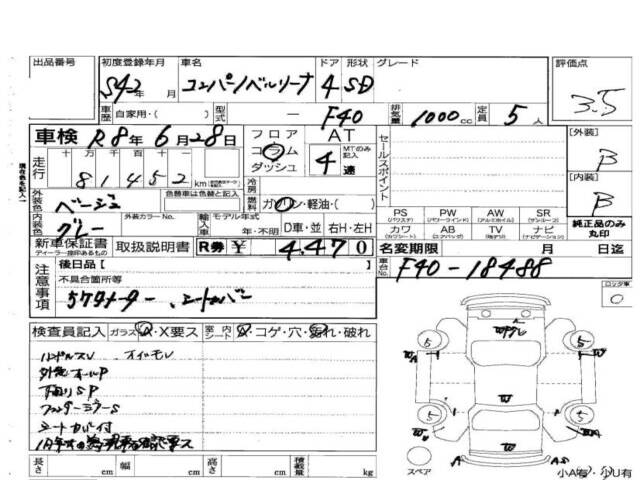 出品番号 初度登録年月 車名 ドア 形状 グレード 評価点
S42年 月 コンパーノベルリーナ 4 SD 3.5
車歴 自家用・( ) 型式 ー F40 排気量 1000cc 定員 5人
車検 R8年6月28日 フロア コラム ダッシュ AT 4速 MTのみ記入 セールスポイント [外装] B
現在色を記入
走行 十万千百十
81452 km
冷房 燃料 ガソリン・軽油・( ) [内装] B
外装色 ベージュ 色替車は色替と記入
内装色 グレー 外装カラーNo. 輸入車 モデル年式 年・不明 D車・並 右H・左H
PS (パワステ) PW (パワーウインド) AW (アルミホイル) SR (サンルーフ)
カワ AB (エアバッグ) TV ナビ (ナビゲーション) 純正品のみ丸印
新車保証書 ディーラー捺印あるもの 取扱説明書 R券 ¥ 4,470 名変期限 月 日迄
注意事項 後日品[ ] 車台No. F40-18488
不具合箇所等
57タメーター、シートカバー
ロックタ車
検査員記入 ガラス A・X要ス 室内シート A・コゲ・穴・汚れ・破れ
ハンドルスレ オイルモレ
下廻りSP
フェンダーミラーS
シートカバー付
長さ cm 幅 cm 高さ cm 積載量 kg
スペア 小A有・小U有